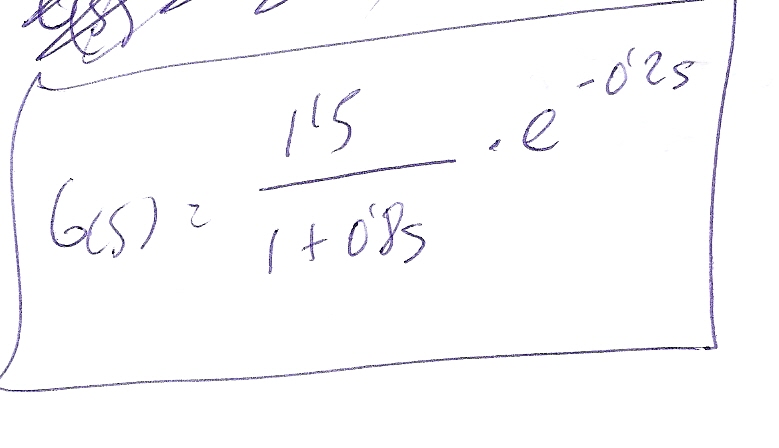 G(s) = 1'5 / 1 + 0'8s · e^-0'2s